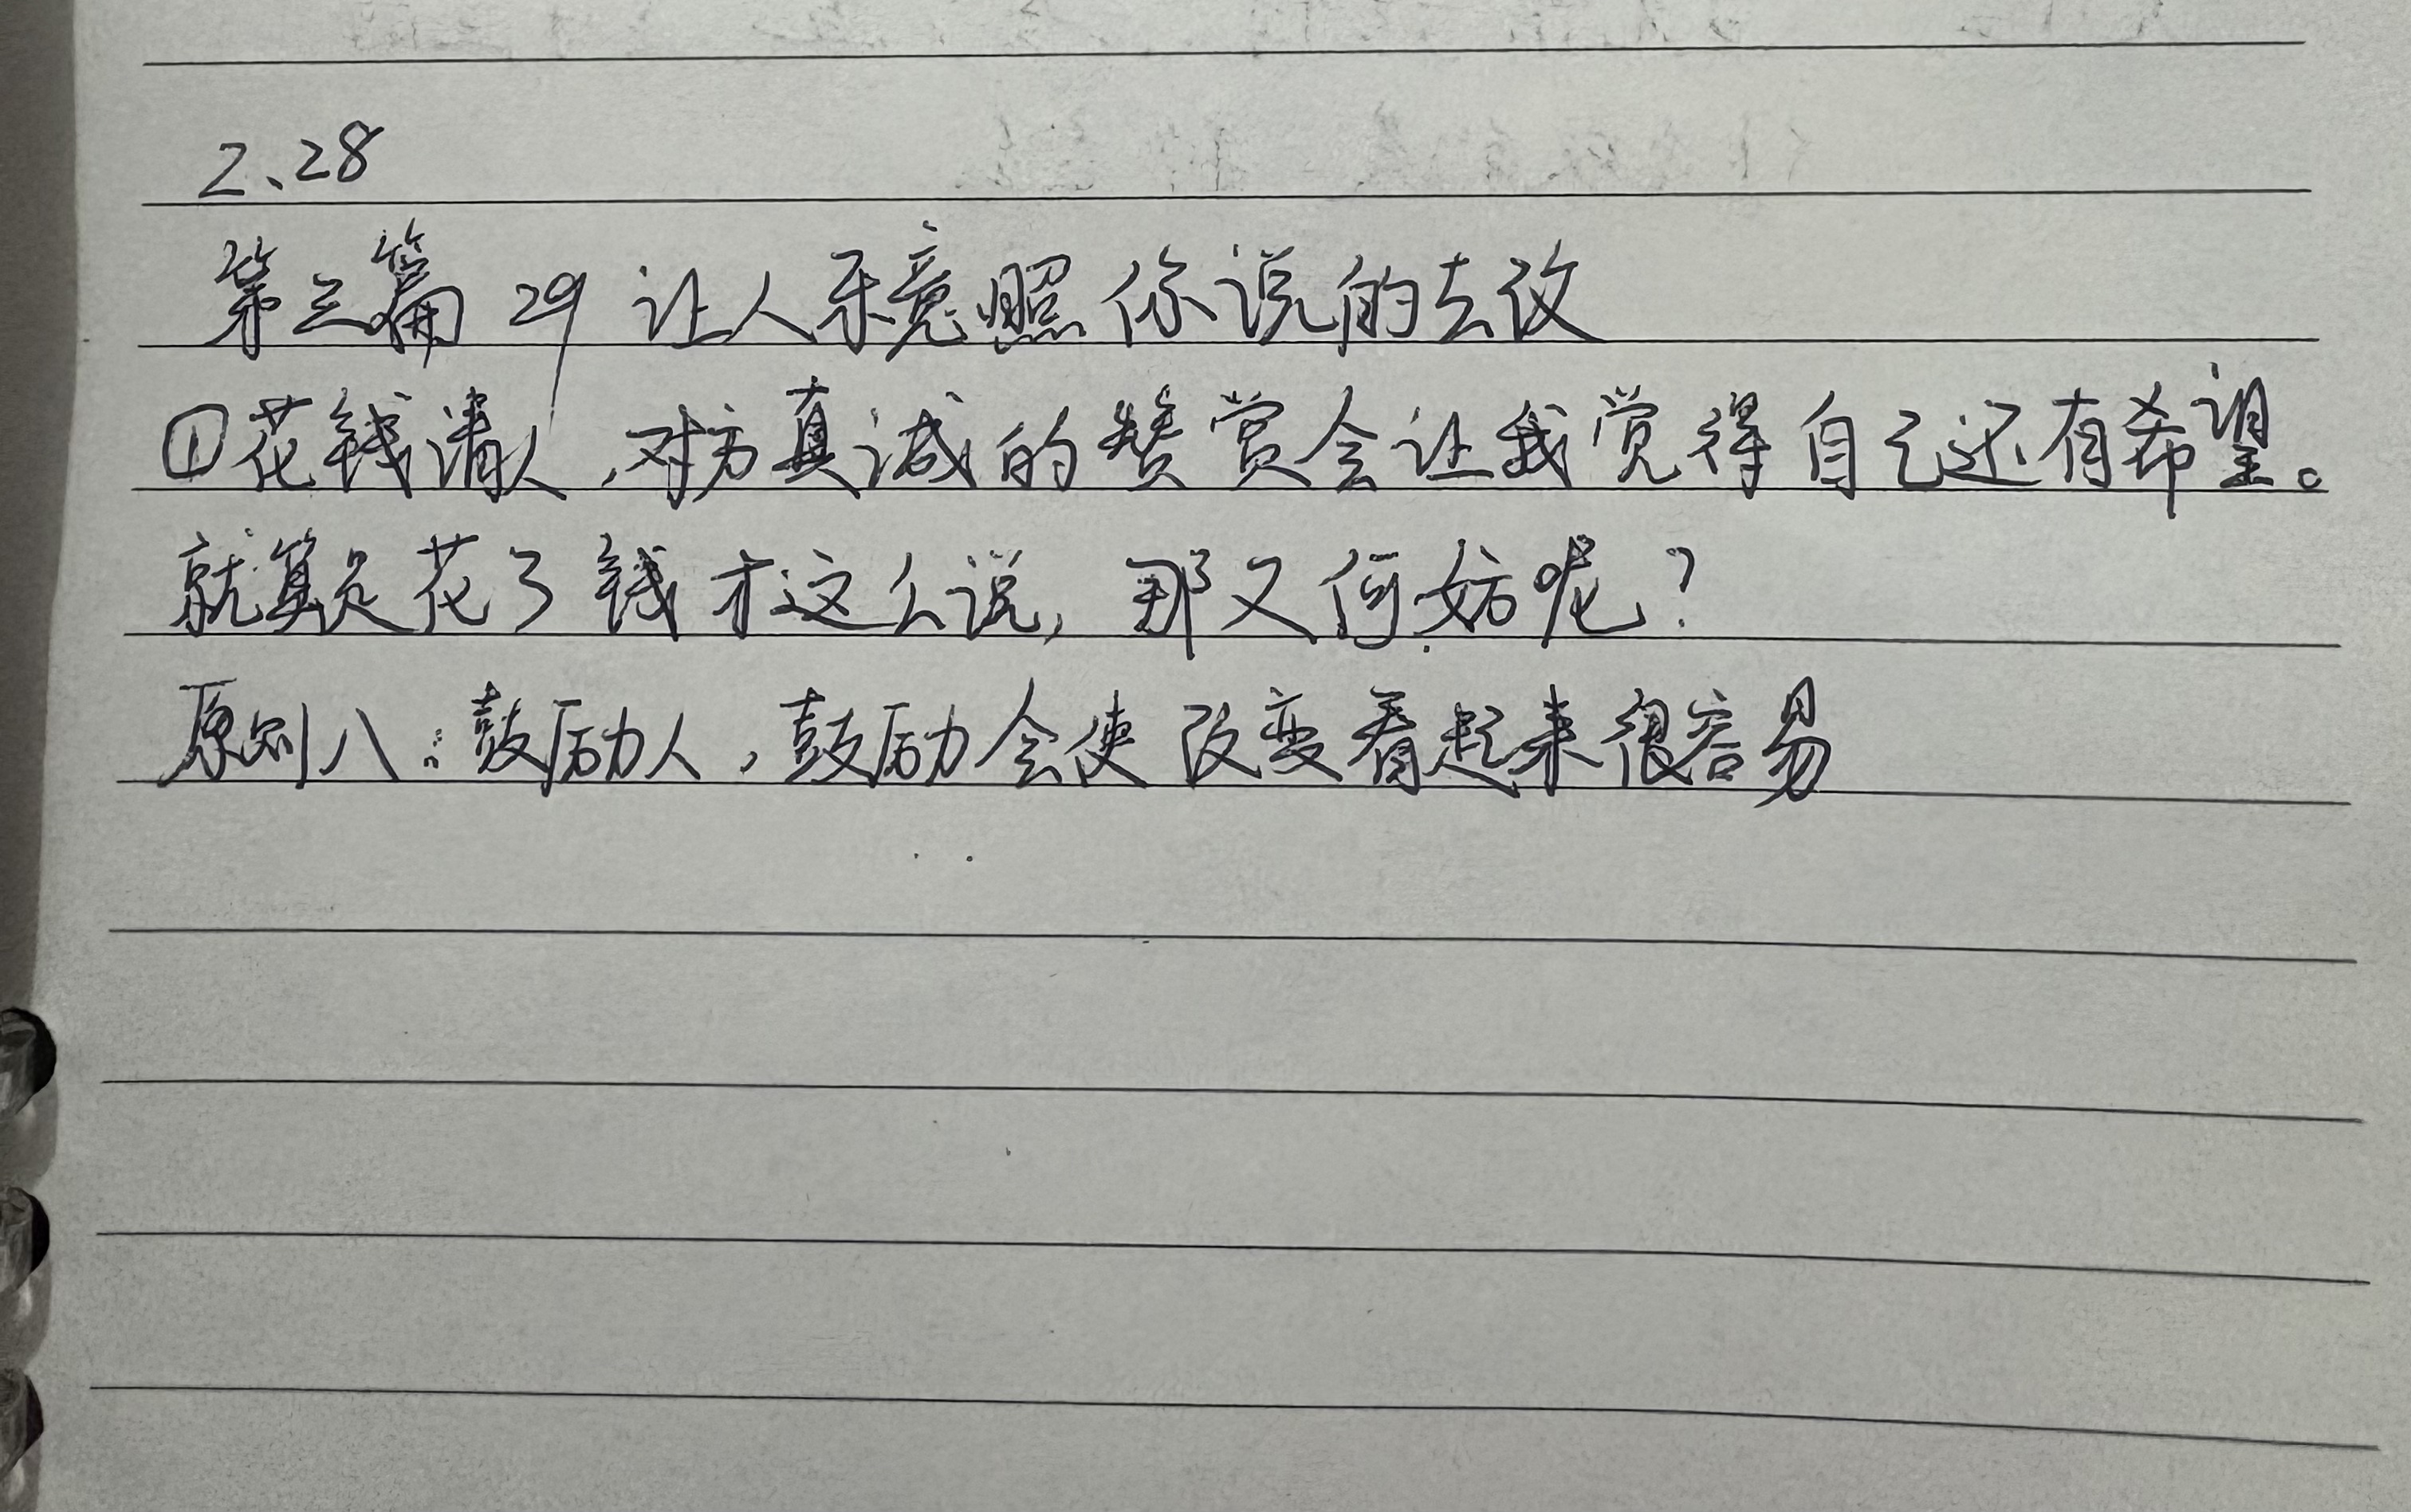 2、28
第三篇 29 让人乐意照你说的去改
①花钱请人，对方真诚的赞赏会让我觉得自己还有希望。
就算是花了钱才这么说，那又何妨呢？
原则八：鼓励人，鼓励会使改变看起来很容易